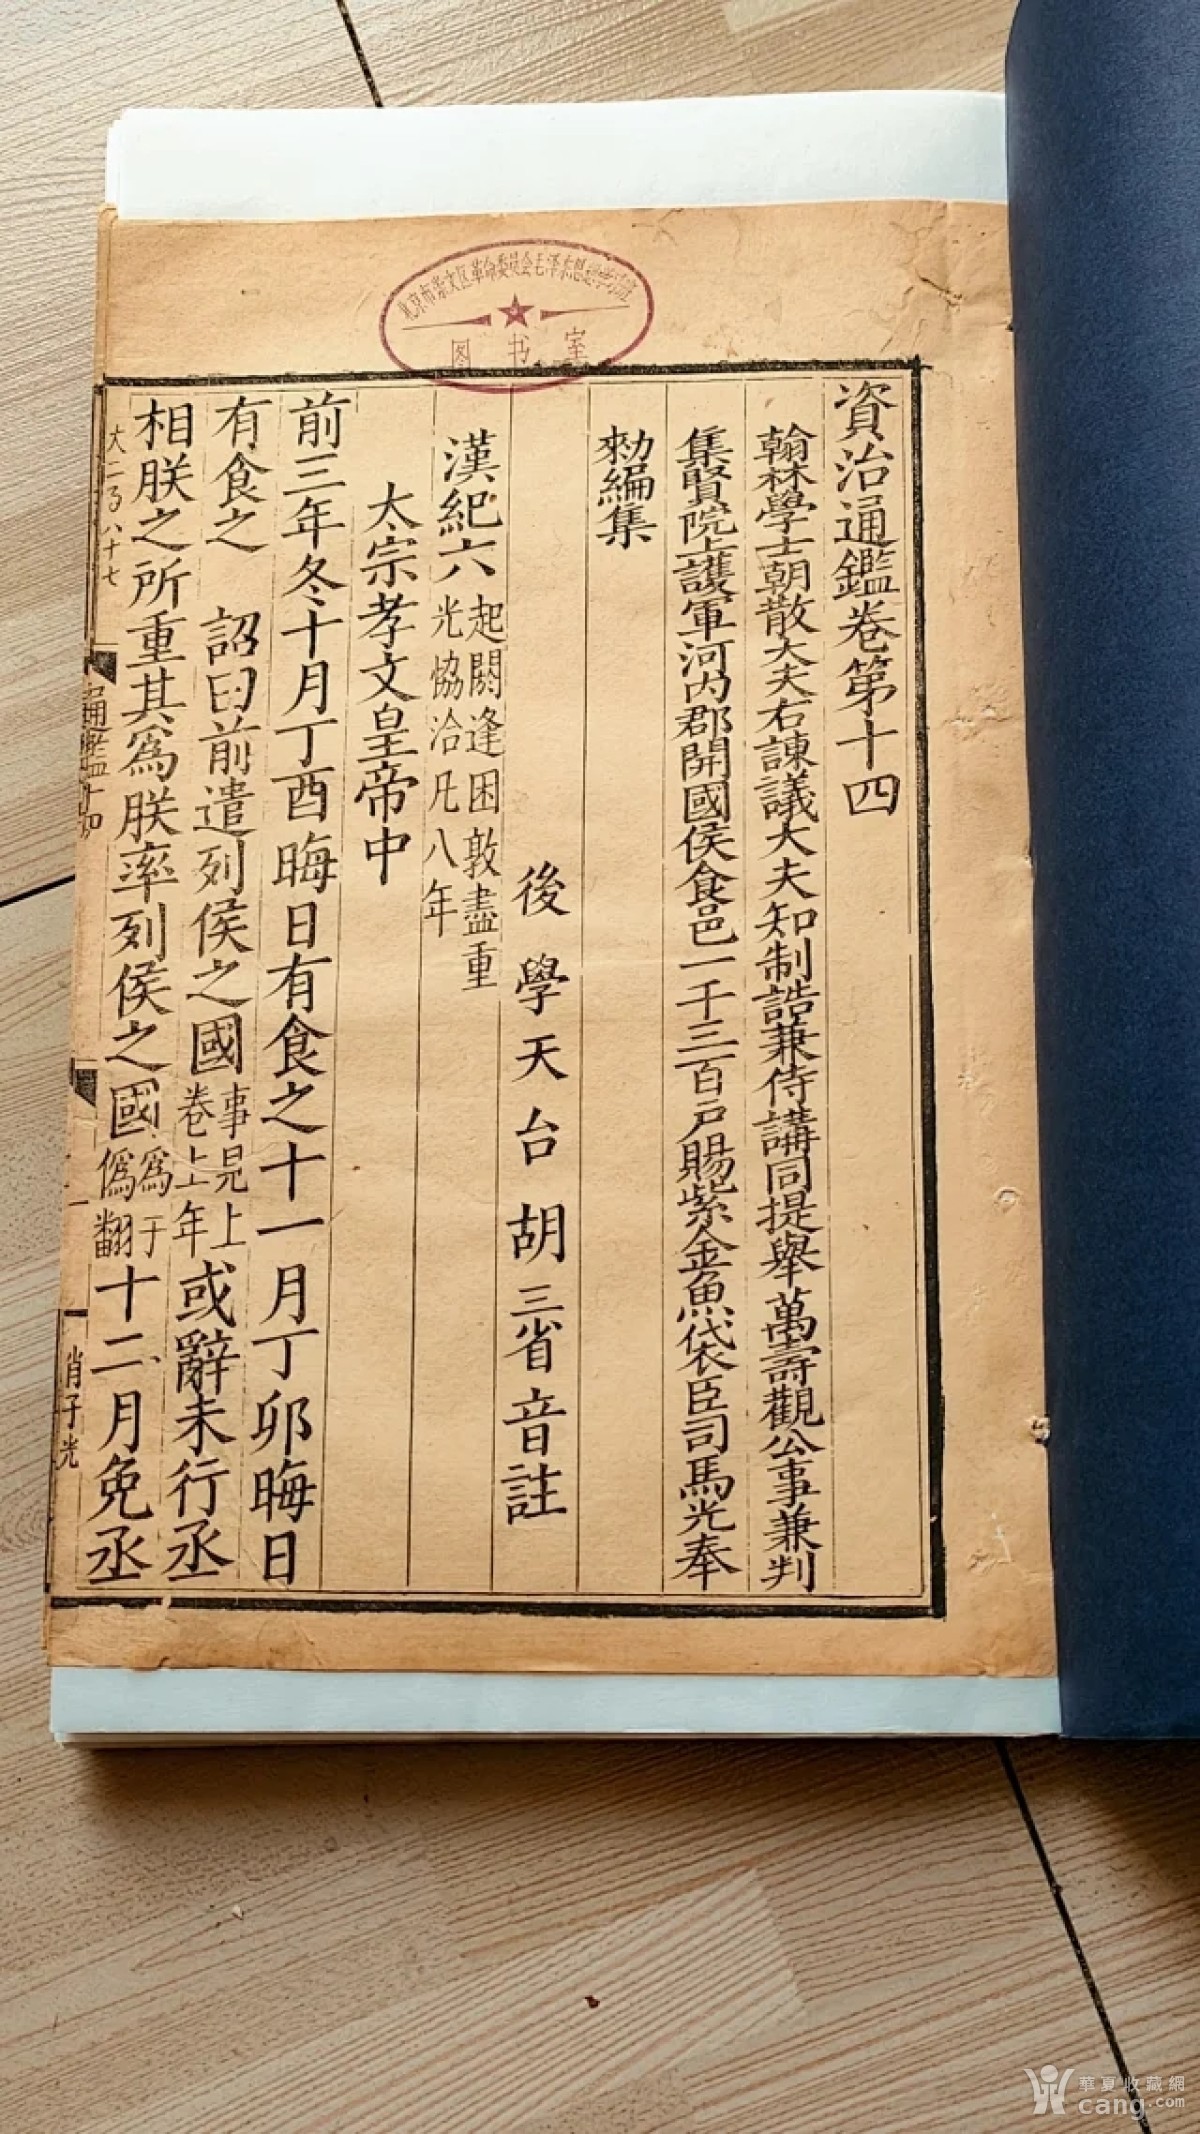 北京市崇文区革命委员会毛泽东思想学习班
图书室
資治通鑑卷第十四
翰林學士朝散大夫右諫議大夫知制誥兼侍講同提舉萬壽觀公事兼判
集賢院上護軍河内郡開國侯食邑一千三百戸賜紫金魚袋臣司馬光奉
勑編集
後學天台胡三省音註
漢紀六
起閼逢困敦盡重
光協洽凡八年
太宗孝文皇帝中
前三年冬十月丁酉晦日有食之十一月丁卯晦日
有食之 詔曰前遣列侯之國
事見上
卷上年
或辭未行丞
相朕之所重其爲朕率列侯之國
爲于
僞翻
十二月免丞
大二百八十七
通鑑十四
肖子光
華夏收藏網
cang.com